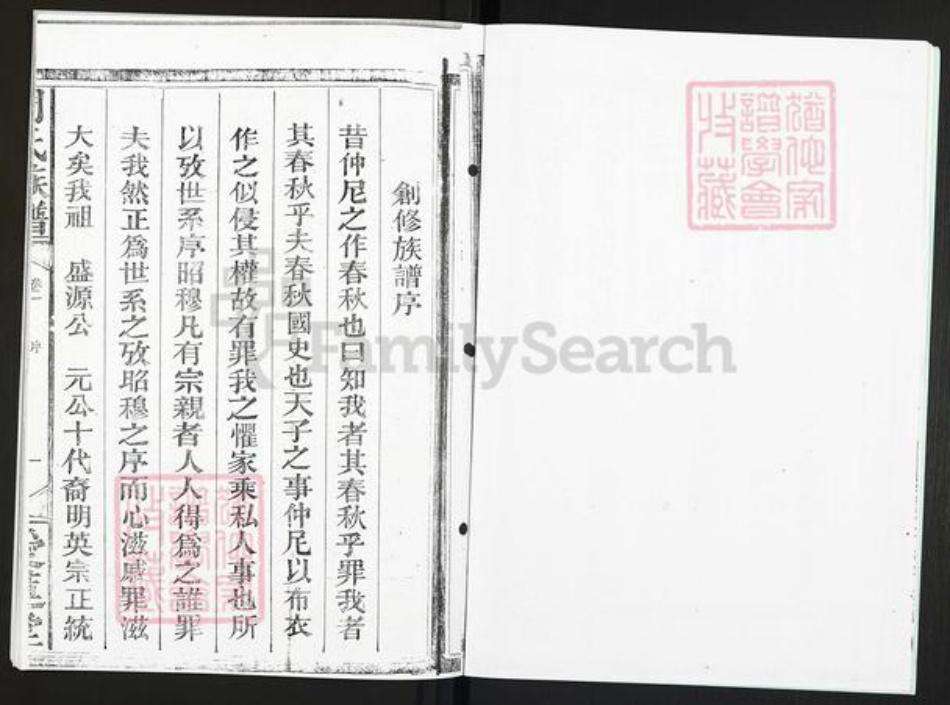 猶他家
譜學會
收藏
創修族譜序
昔仲尼之作春秋也曰知我者其春秋乎罪我者
其春秋乎夫春秋國史也天子之事仲尼以布衣
作之似侵其權故有罪我之懼家乘私人事也所
以攷世系序昭穆凡有宗親者人人得爲之誰罪
夫我然正爲世系之攷昭穆之序而心滋慼罪滋
大矣我祖 盛源公 元公十代裔明英宗正統
氏族譜
卷一
序
一
FamilySearch